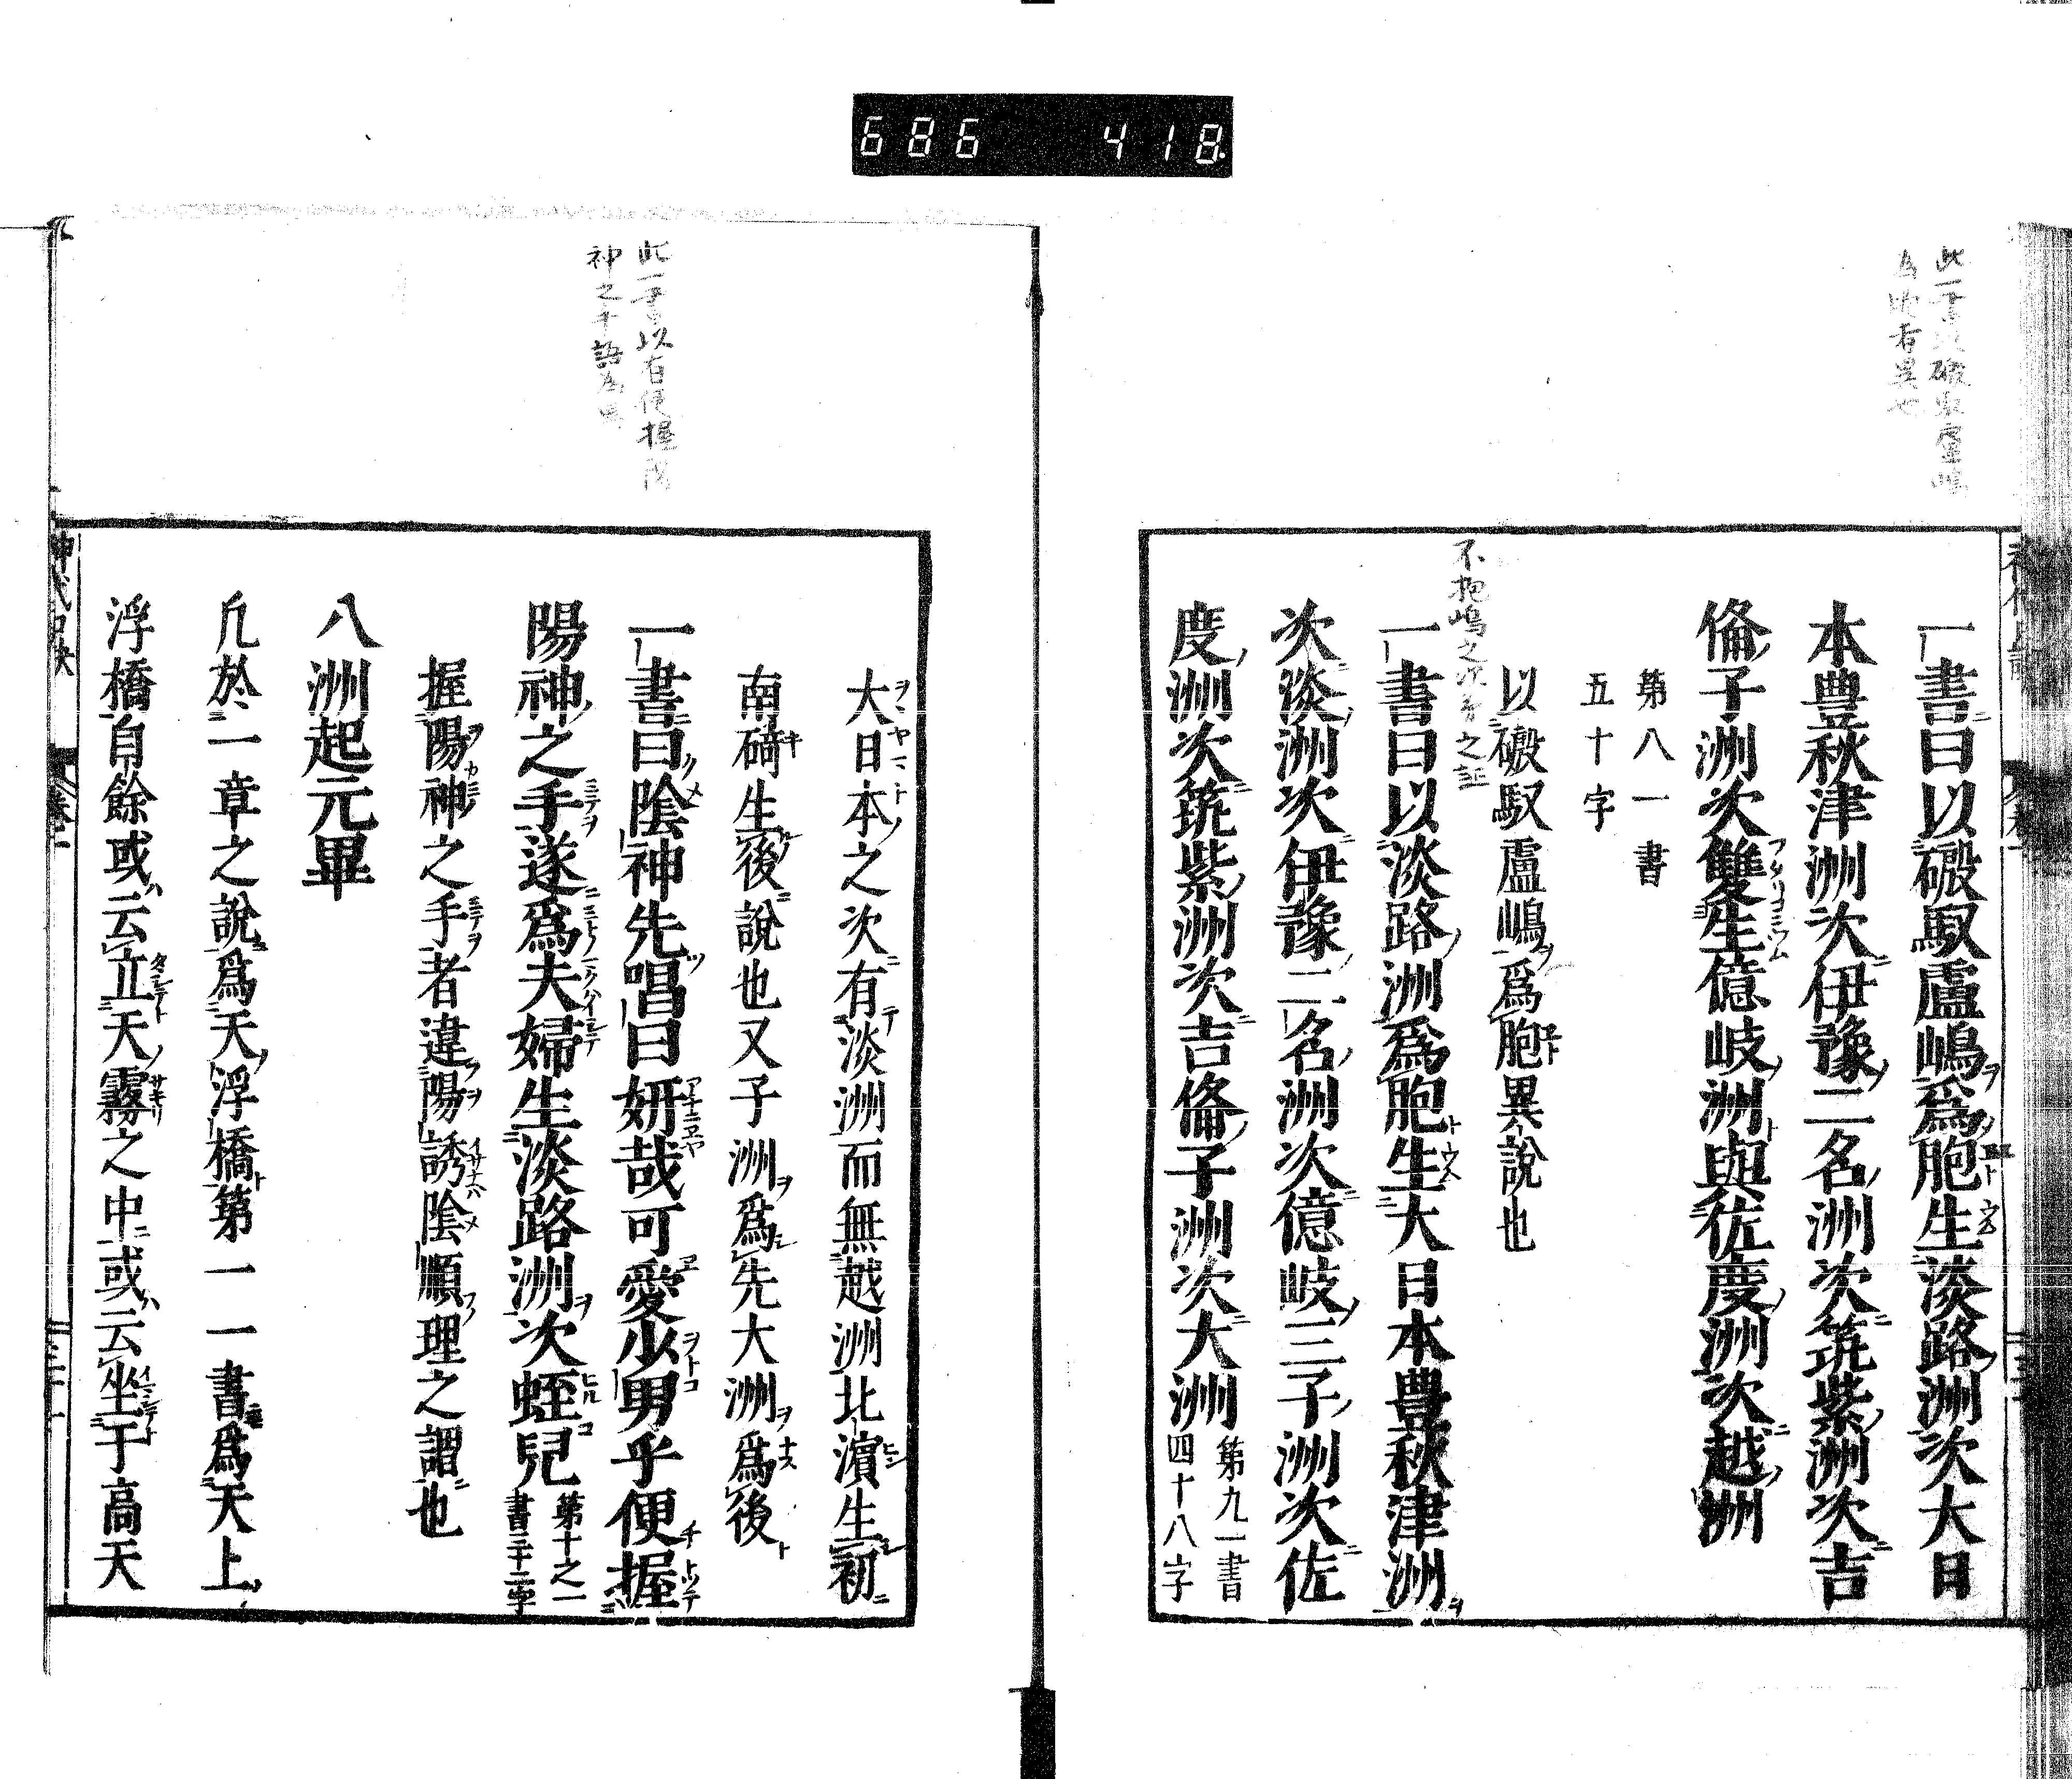 686 418
一書曰以磤馭盧嶋爲胞生淡路洲次大日
本豊秋津洲次伊豫二名洲次筑紫洲次吉
倫子洲次雙生億岐洲與佐度洲次越洲
第八一書
五十字
以磤馭盧嶋爲胞異說也
不抱嶋之次第之証
一書曰以淡路洲爲胞生大日本豊秋津洲
次淡洲次伊豫二名洲次億岐三子洲次佐
度洲次筑紫洲次吉倫子洲次大洲
第九一書
四十八字
此一書以有便握陽
神之手語為異
大日本之次有淡洲而無越洲北濵生初
南碕生後說也又子洲爲先大洲爲後
一書曰陰神先唱曰妍哉可愛少男乎便握
陽神之手遂爲夫婦生淡路洲次蛭兒
第十之一
書三十二字
握陽神之手者違陽誘陰順理之謂也
八洲起元畢
凡於一章之說爲天浮橋第一一書爲天上
浮橋自餘或云立天霧之中或云坐于高天